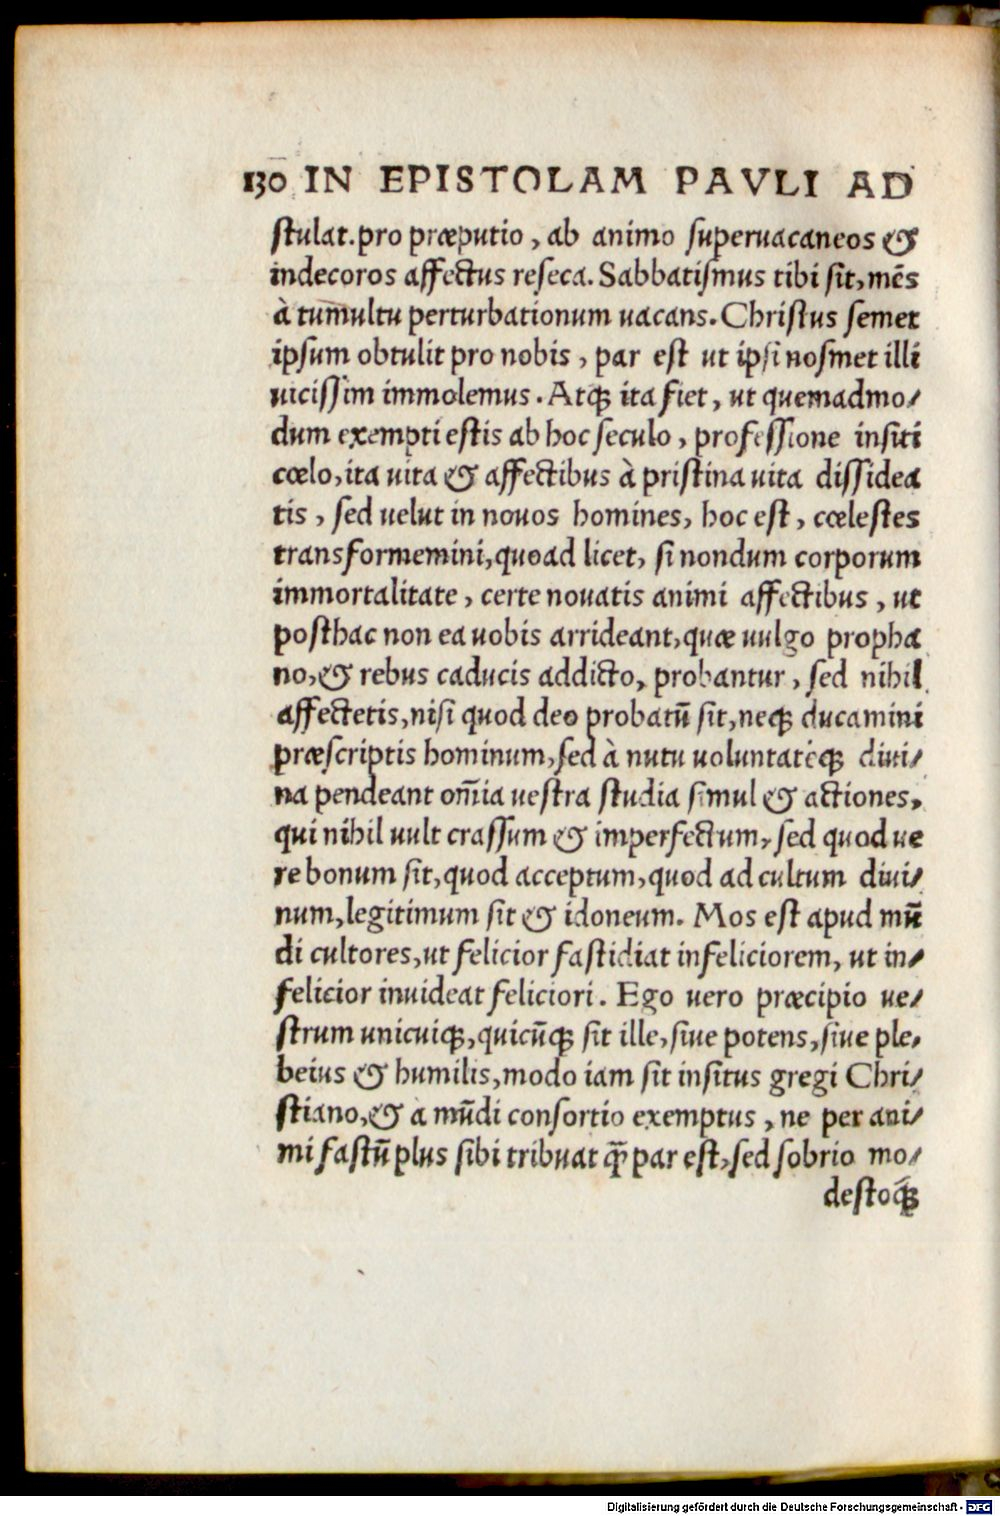 130 IN EPISTOLAM PAVLI AD
ſtulat. pro præputio, ab animo ſuperuacaneos &
indecoros affectus reſeca. Sabbatiſmus tibi ſit, mēs
à tumultu perturbationum uacans. Chriſtus ſemet
ipſum obtulit pro nobis, par eſt ut ipſi noſmet illi
uiciſſim immolemus. Atq; ita fiet, ut quemadmo-
dum exempti eſtis ab hoc ſeculo, profeſſione inſiti
cœlo, ita uita & affectibus à priſtina uita diſſidea
tis, ſed uelut in nouos homines, hoc eſt, cœleſtes
transformemini, quoad licet, ſi nondum corporum
immortalitate, certe nouatis animi affectibus, ut
poſthac non ea uobis arrideant, quæ uulgo propha
no, & rebus caducis addicto, probantur, ſed nihil
affectetis, niſi quod deo probatū ſit, neq; ducamini
præſcriptis hominum, ſed à nutu uoluntatéq; diui-
na pendeant om̄ia ueſtra ſtudia ſimul & actiones,
qui nihil uult craſſum & imperfectum, ſed quod ue
re bonum ſit, quod acceptum, quod ad cultum diui-
num, legitimum ſit & idoneum. Mos eſt apud mū
di cultores, ut felicior faſtidiat infeliciorem, ut in-
felicior inuideat feliciori. Ego uero præcipio ue-
ſtrum unicuiq;, quicūq; ſit ille, ſiue potens, ſiue ple-
beius & humilis, modo iam ſit inſitus gregi Chri-
ſtiano, & à mūdi conſortio exemptus, ne per ani-
mi faſtū plus ſibi tribuat q̄ par eſt, ſed ſobrio mo-
deſtoq́;
Digitalisierung gefördert durch die Deutsche Forschungsgemeinschaft - DFG